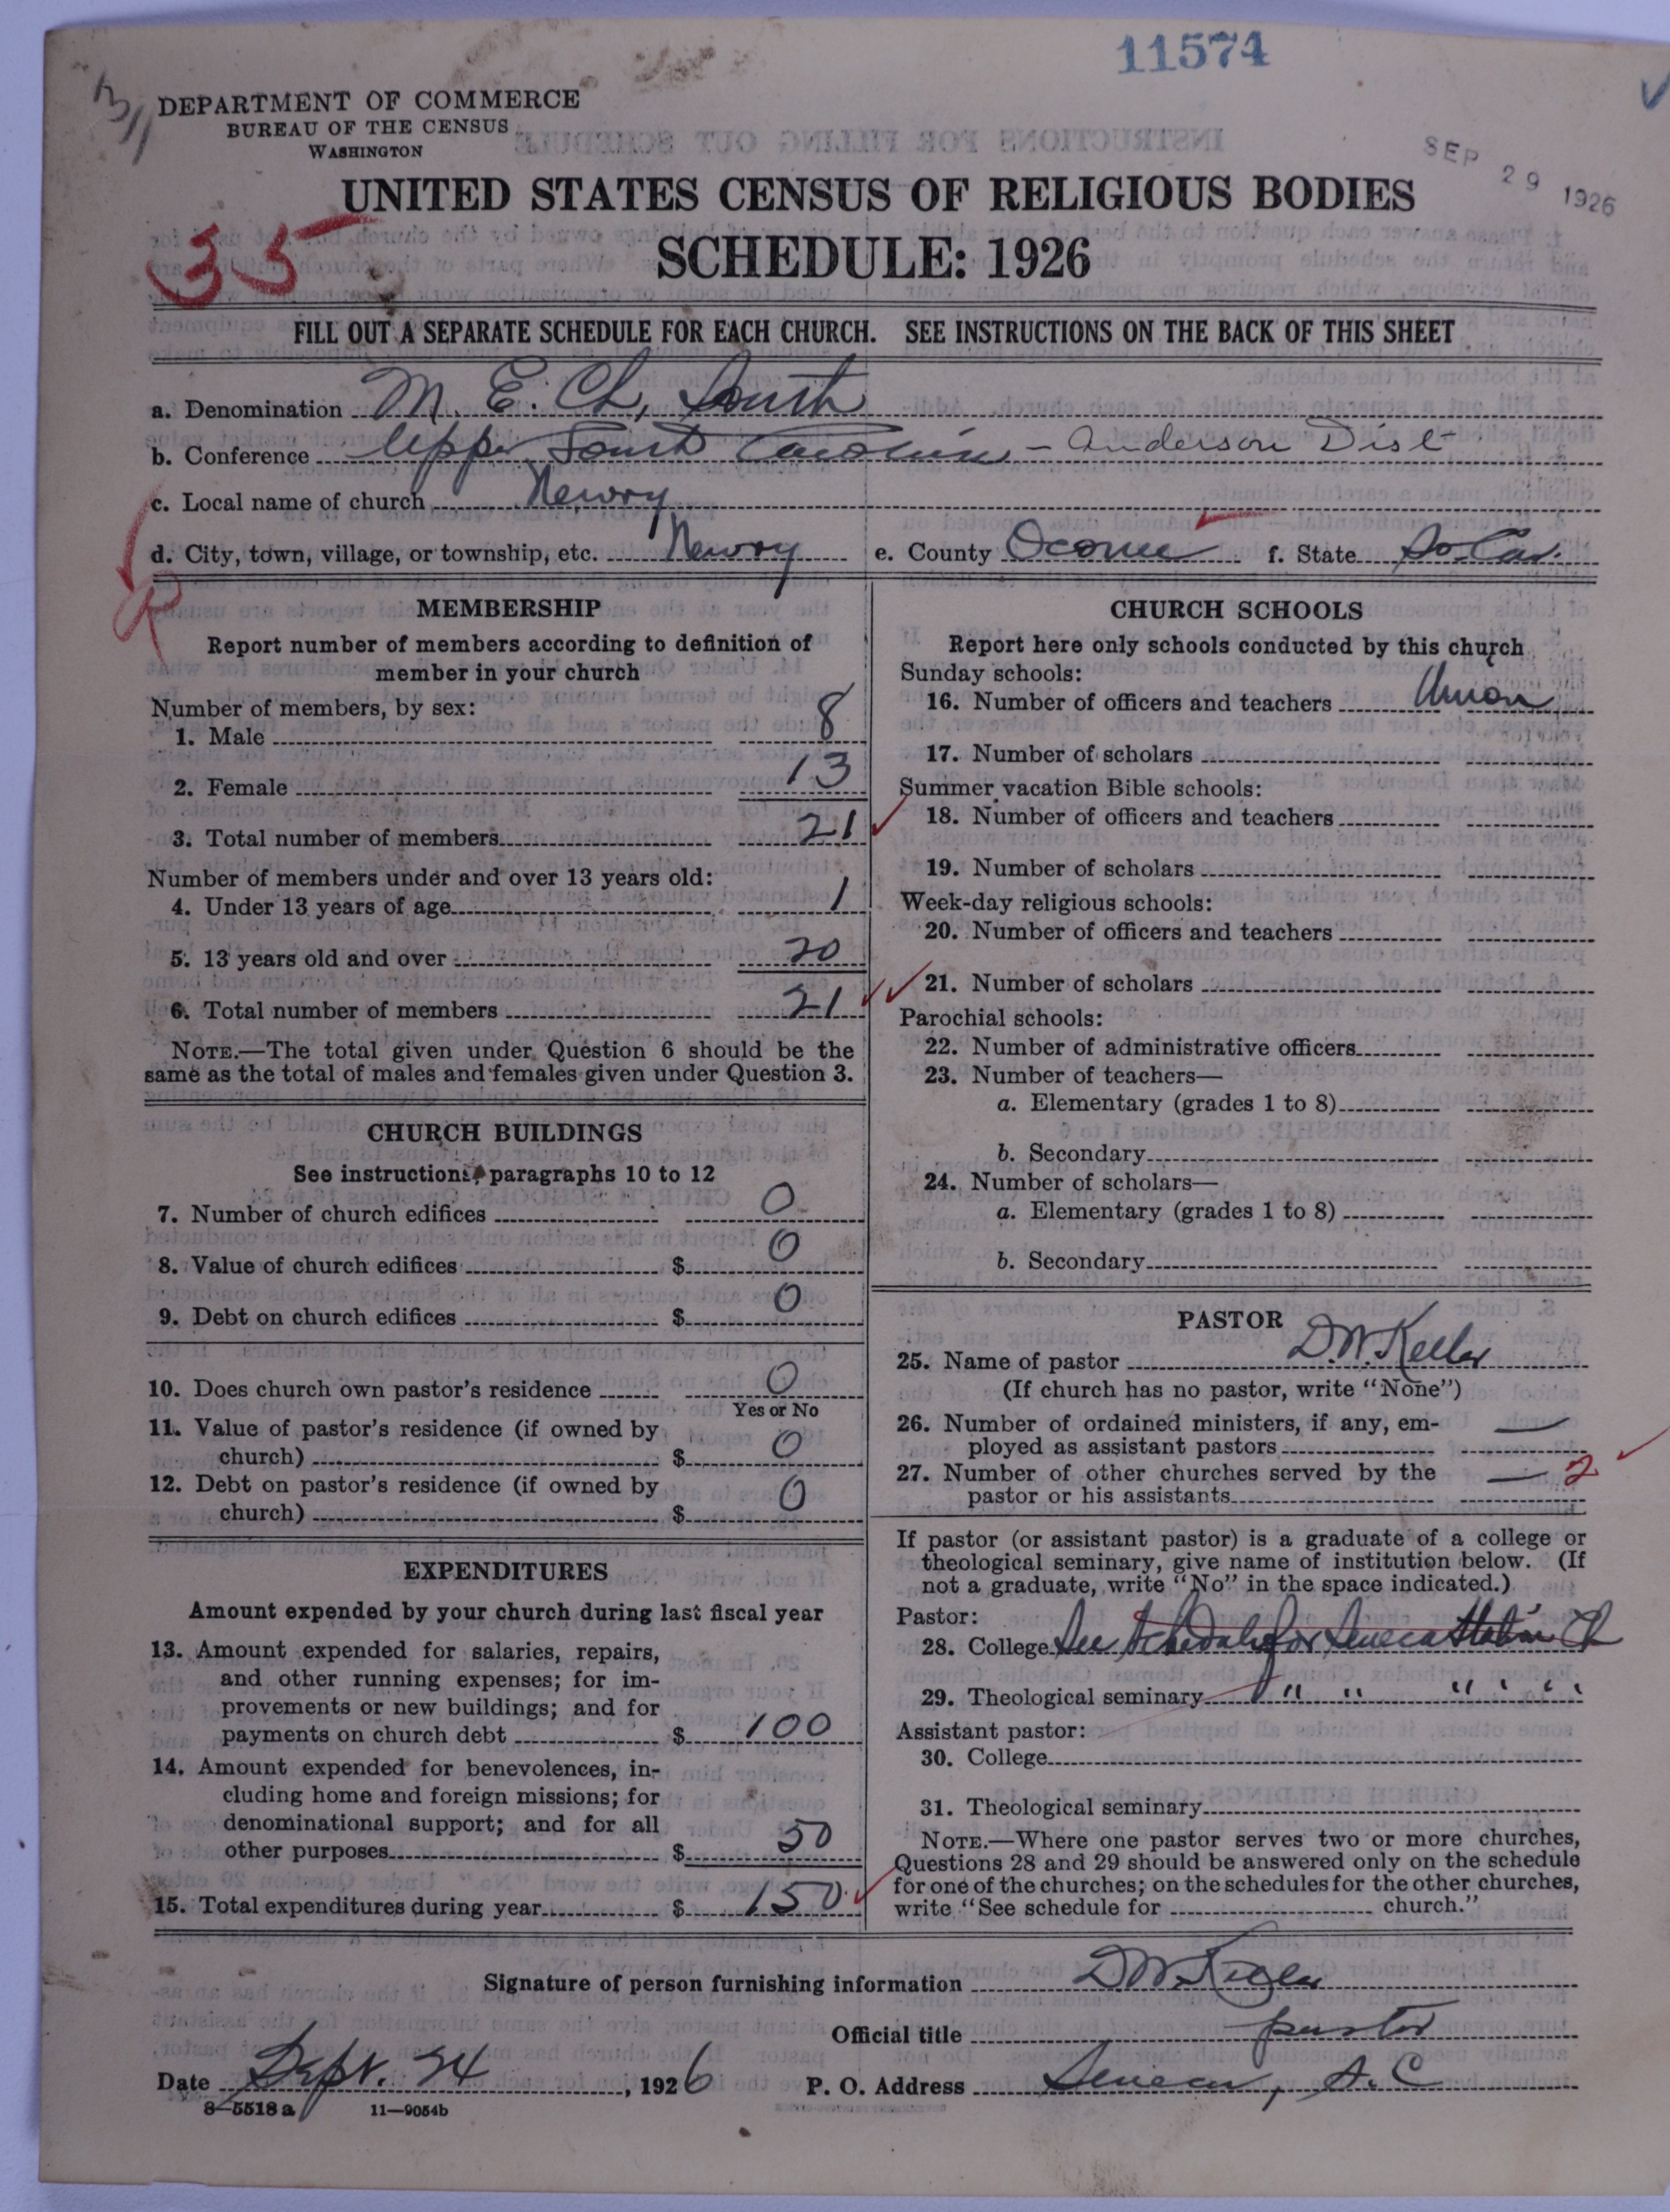 11574
DEPARTMENT OF COMMERCE
BUREAU OF THE CENSUS
WASHINGTON
SEP 29 1926
UNITED STATES CENSUS OF RELIGIOUS BODIES
35
SCHEDULE: 1926
FILL OUT A SEPARATE SCHEDULE FOR EACH CHURCH. SEE INSTRUCTIONS ON THE BACK OF THIS SHEET
a. Denomination M. E. Ch, South
b. Conference Upper South Carolina - Anderson Dist
c. Local name of church Newry
d. City, town, village, or township, etc. Newry e. County Oconee f. State So. Car.
MEMBERSHIP
Report number of members according to definition of
member in your church
Number of members, by sex:
1. Male 8
2. Female 13
3. Total number of members 21
Number of members under and over 13 years old:
4. Under 13 years of age 1
5. 13 years old and over 20
6. Total number of members 21
NOTE.—The total given under Question 6 should be the
same as the total of males and females given under Question 3.
CHURCH BUILDINGS
See instructions, paragraphs 10 to 12
7. Number of church edifices 0
8. Value of church edifices $ 0
9. Debt on church edifices $ 0
10. Does church own pastor's residence 0
Yes or No
11. Value of pastor's residence (if owned by
church) $ 0
12. Debt on pastor's residence (if owned by
church) $ 0
EXPENDITURES
Amount expended by your church during last fiscal year
13. Amount expended for salaries, repairs,
and other running expenses; for im-
provements or new buildings; and for
payments on church debt $ 100
14. Amount expended for benevolences, in-
cluding home and foreign missions; for
denominational support; and for all
other purposes $ 50
15. Total expenditures during year $ 150
CHURCH SCHOOLS
Report here only schools conducted by this church
Sunday schools:
16. Number of officers and teachers Union
17. Number of scholars
Summer vacation Bible schools:
18. Number of officers and teachers
19. Number of scholars
Week-day religious schools:
20. Number of officers and teachers
21. Number of scholars
Parochial schools:
22. Number of administrative officers
23. Number of teachers—
a. Elementary (grades 1 to 8)
b. Secondary
24. Number of scholars—
a. Elementary (grades 1 to 8)
b. Secondary
PASTOR
25. Name of pastor D. W. Keller
(If church has no pastor, write "None")
26. Number of ordained ministers, if any, em-
ployed as assistant pastors —
27. Number of other churches served by the — 2
pastor or his assistants
If pastor (or assistant pastor) is a graduate of a college or
theological seminary, give name of institution below. (If
not a graduate, write "No" in the space indicated.)
Pastor:
28. College See Schedule for Seneca Station Ch
29. Theological seminary " " " " "
Assistant pastor:
30. College
31. Theological seminary
NOTE.—Where one pastor serves two or more churches,
Questions 28 and 29 should be answered only on the schedule
for one of the churches; on the schedules for the other churches,
write "See schedule for church."
Signature of person furnishing information D W Keller
Official title pastor
Date Sept. 24, 1926 P. O. Address Seneca, S. C
8—5518 a 11—9054b